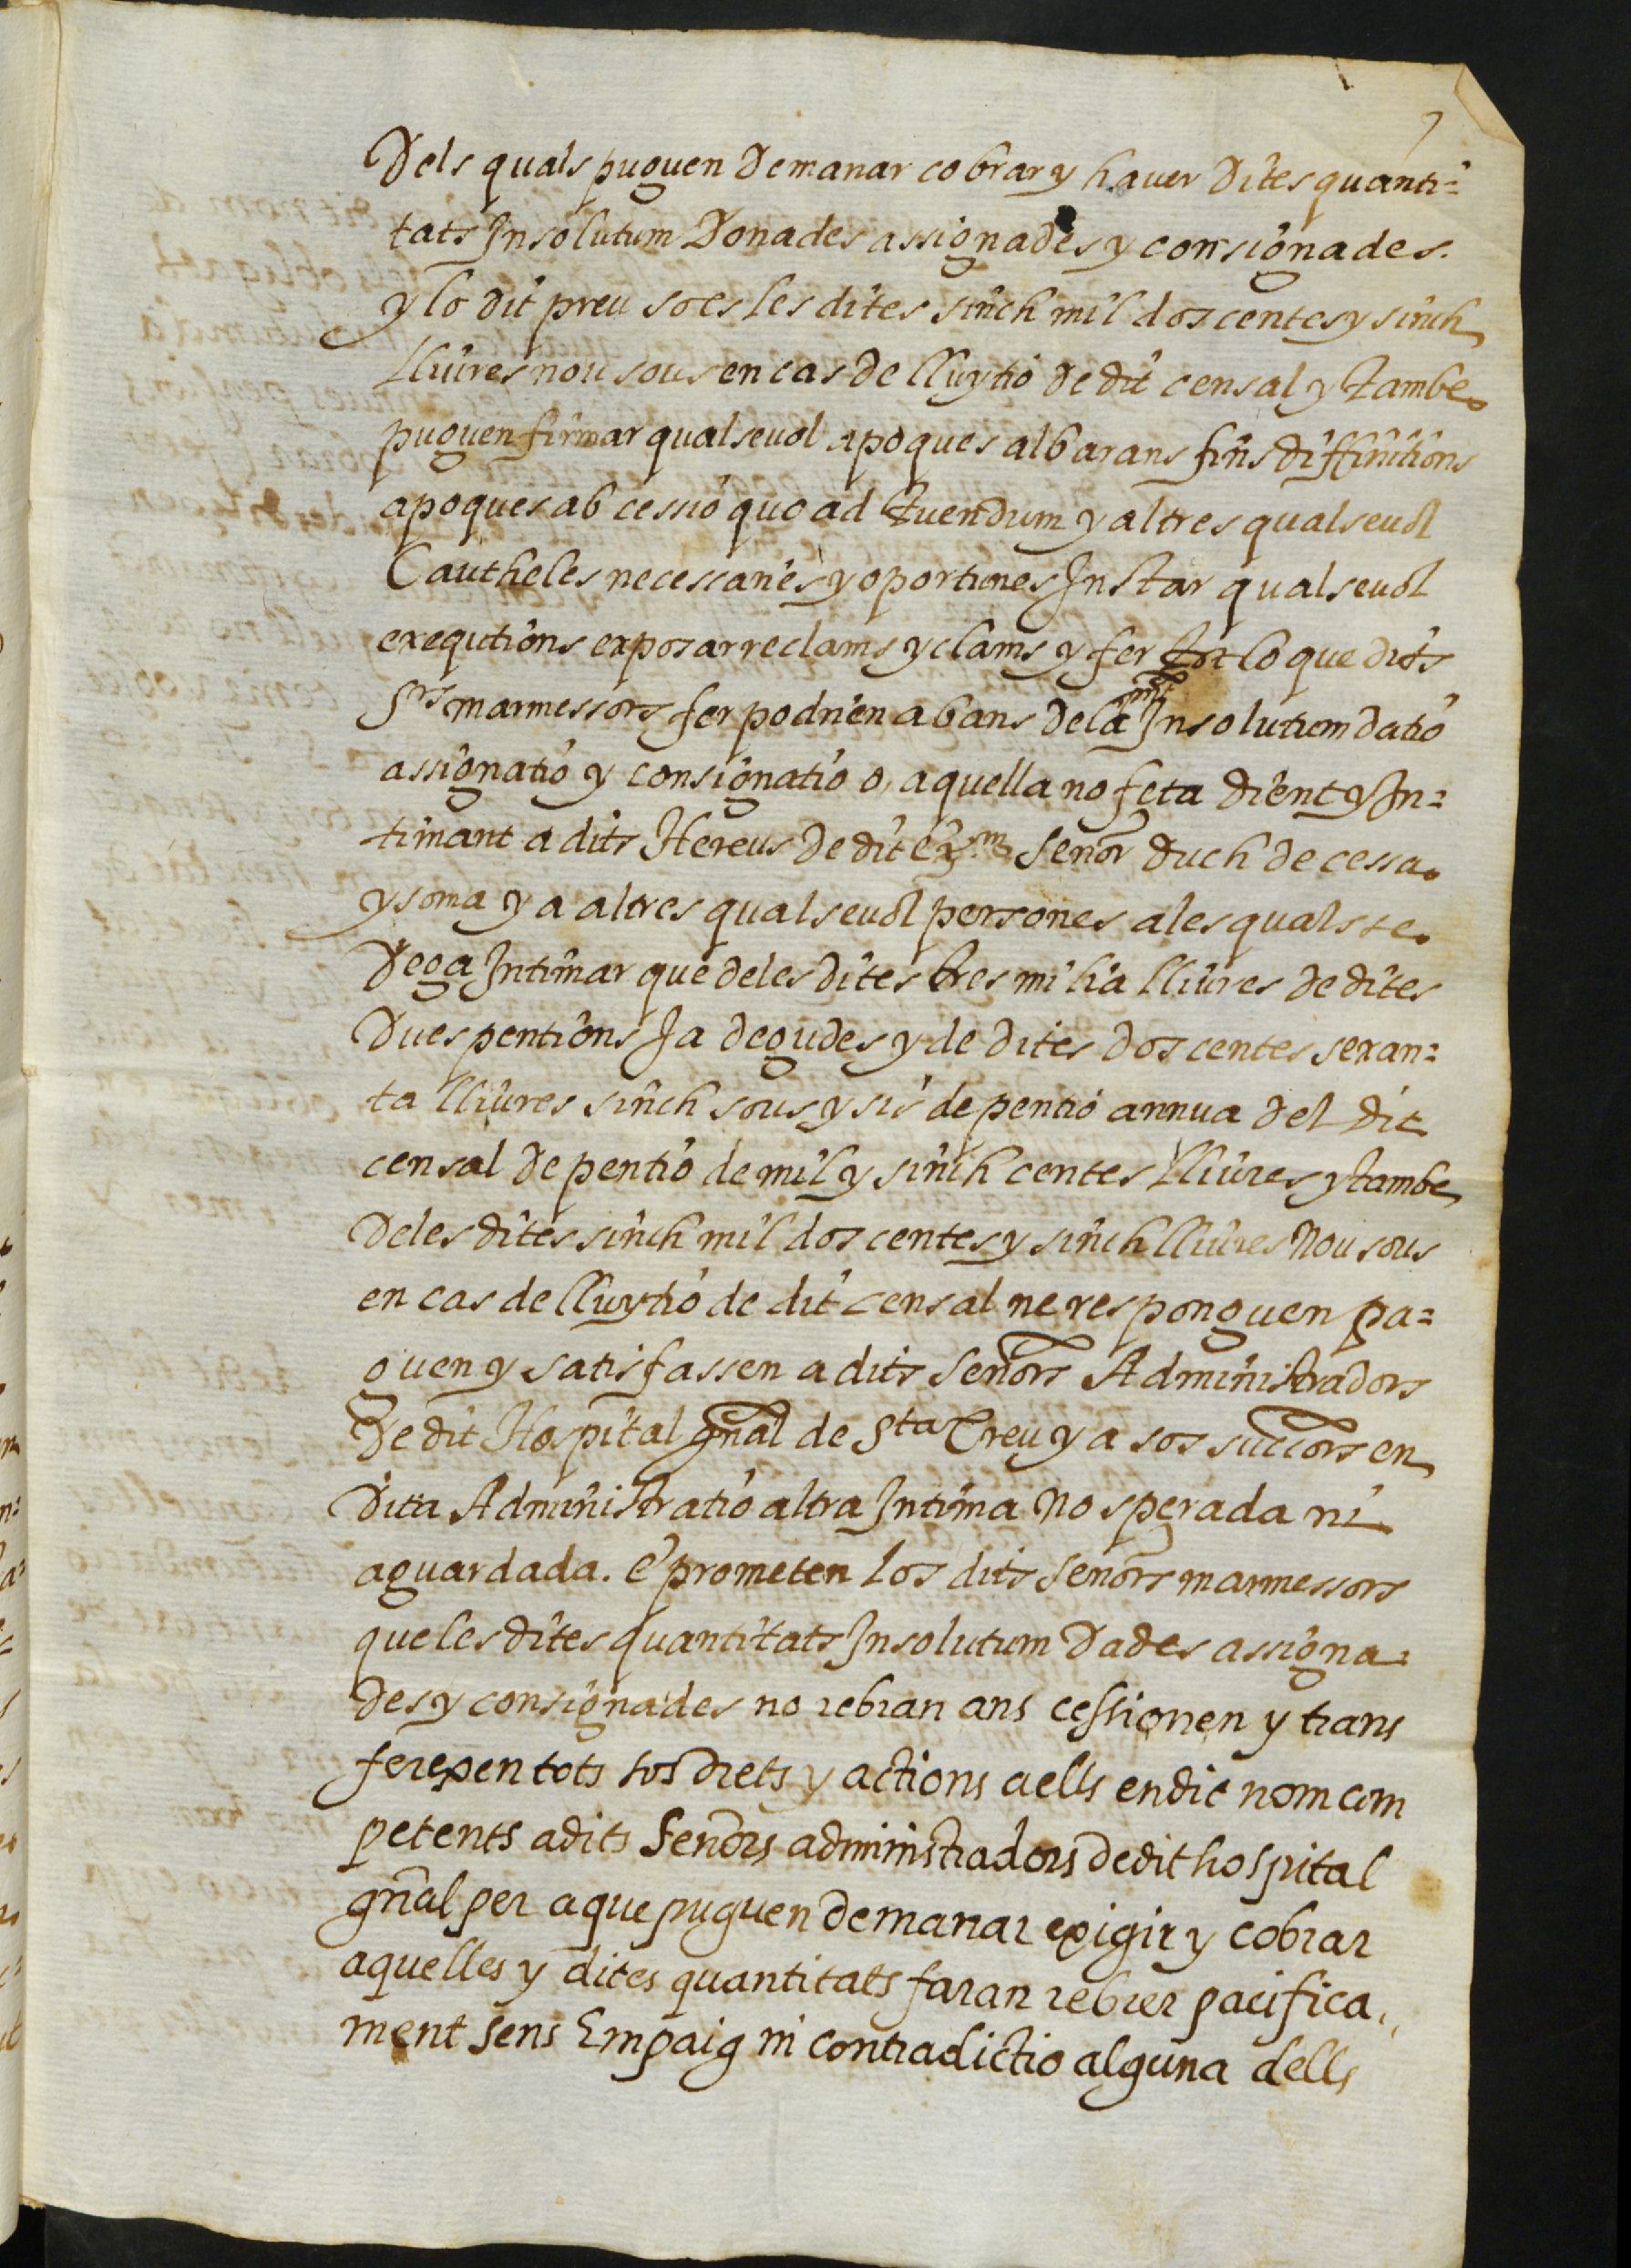 7
Dels quals puguen Demanar cobrar y haver Dites quanti=
tats Insolutum Donades assignades y consignades.
y lo dit preu soes les dites sinch mil doscentes y sinch
lliures nou sous en cas de lluytió de dit censal y tambe
puguen firmar qualsevol apoques albarans fins diffinitions
apoques ab cessió quo ad tuendum y altres qualsevol
Cautheles necessaries y oportunes Instar qualsevol
exequtions exposar reclams y clams y fer tot lo que dits
Srs marmessors fer podrien abans dela nt Insolutum datió
assignatió y consignatió o, aquella no feta dient y In=
timant a dits Hereus de dit Exm Señor duch de cessa
y soma y a altres qualsevol persones ales quals se
Dega Intimar que deles dites tres milia lliures de dites
Dues pentions Ja degudes y de dites doscentes sexan=
ta lliures sinch sous y sis de pentió annua del dit
censal De pentió de mil y sinch centes lliures y tambe
Deles dites sinch mil doscentes y sinch lliures Nou sous
en cas de lluytió de dit censal ne responguen pa=
guen y satisfassen a dits Señors Administradors
De dit Hospital gñal de Sta Creu y a sos succors en
Dita Administratió altra Intima No sperada ni
aguardada. E prometen los dits señors marmessors
que les dites quantitats Insolutum Dades assigna
des y consignades no rebran ans cessionen y trans
ferexen tots sos drets y actions a ells en dit nom com
petents a dits Señors administradors de dit hospital
gñal per a que puguen demanar exigir y cobrar
aquelles y dites quantitats faran rebrer pacifica,,
ment sens Empaig ni contradictio alguna dells